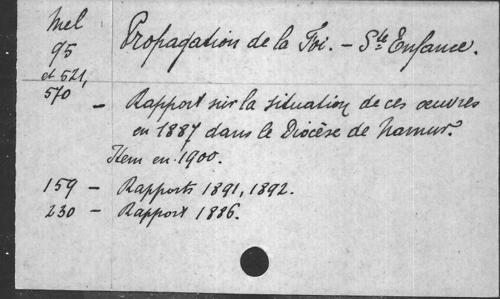 Mel
95
et 521,
570
Propagation de la Foi. - Ste Enfance.
- Rapport sur la situation de ces œuvres
en 1887 dans le Diocèse de Namur.
Item en 1900.
159 - Rapports 1891, 1892.
230 - Rapport 1886.